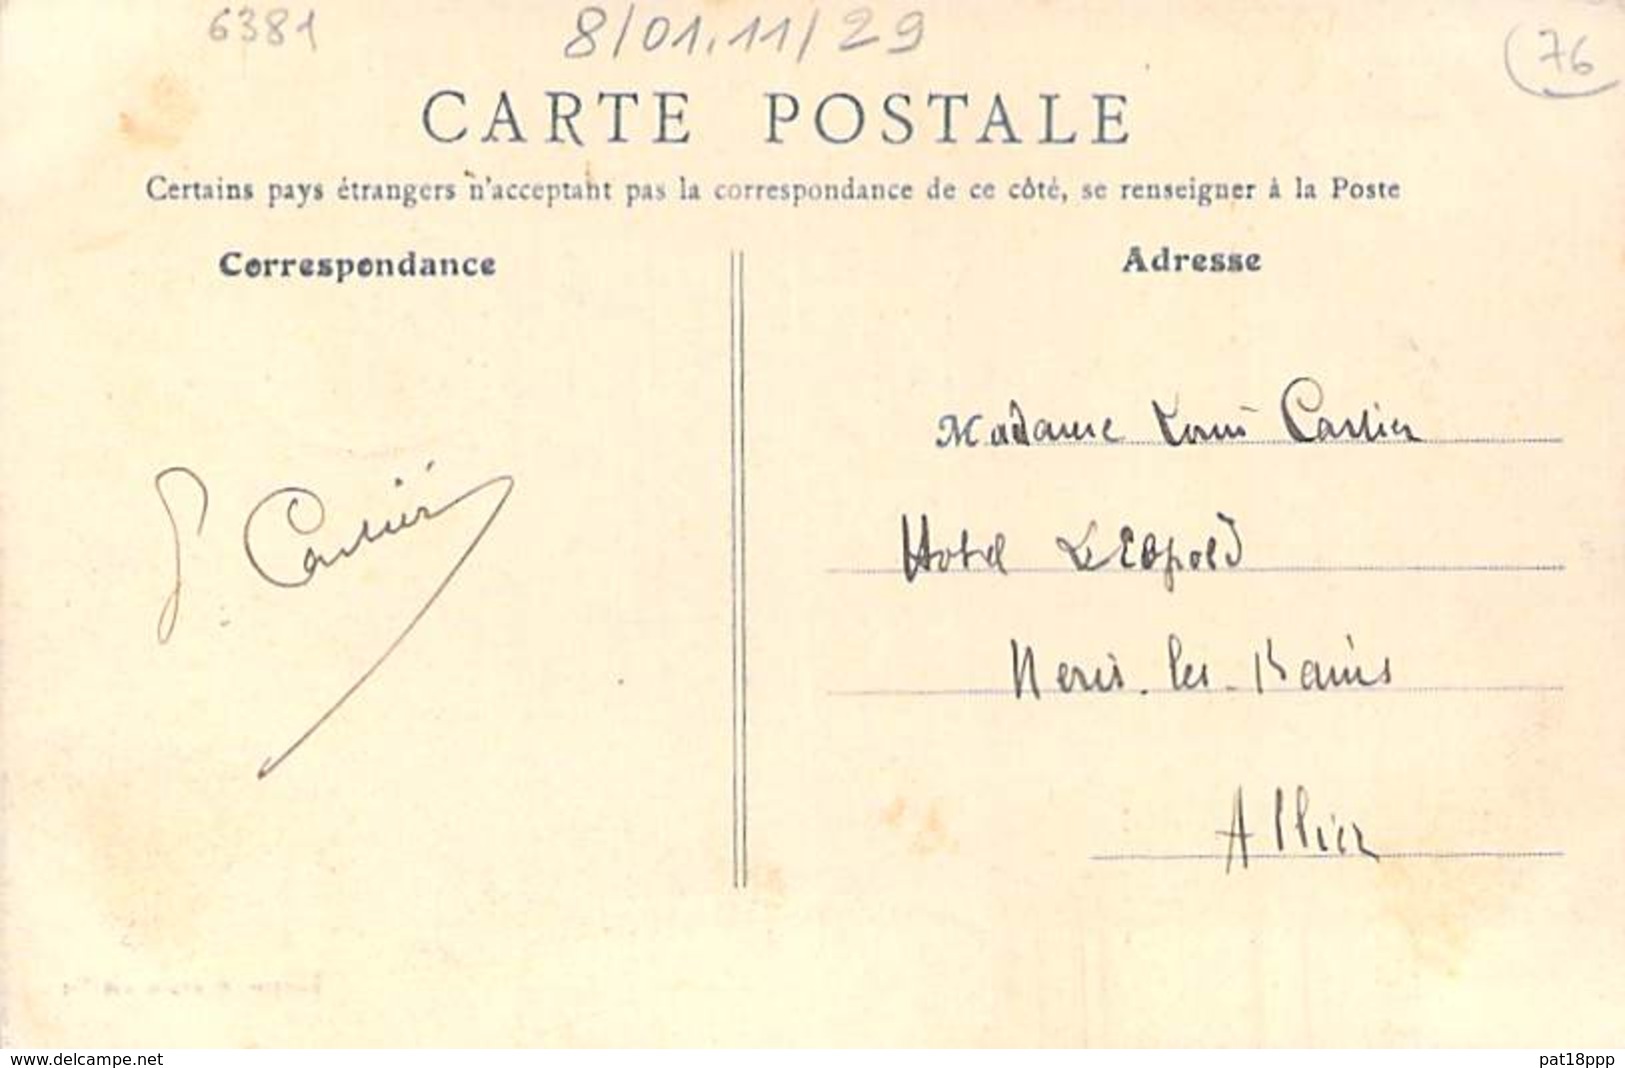 6381
8/01.11/29
76
CARTE POSTALE
Certains pays étrangers n'acceptant pas la correspondance de ce côté, se renseigner à la Poste
Correspondance
Adresse
Madame Louis Carlier
Hotel Léopold
Neris-les-Bains
Allier
Carlier
www.delcampe.net
pat18ppp